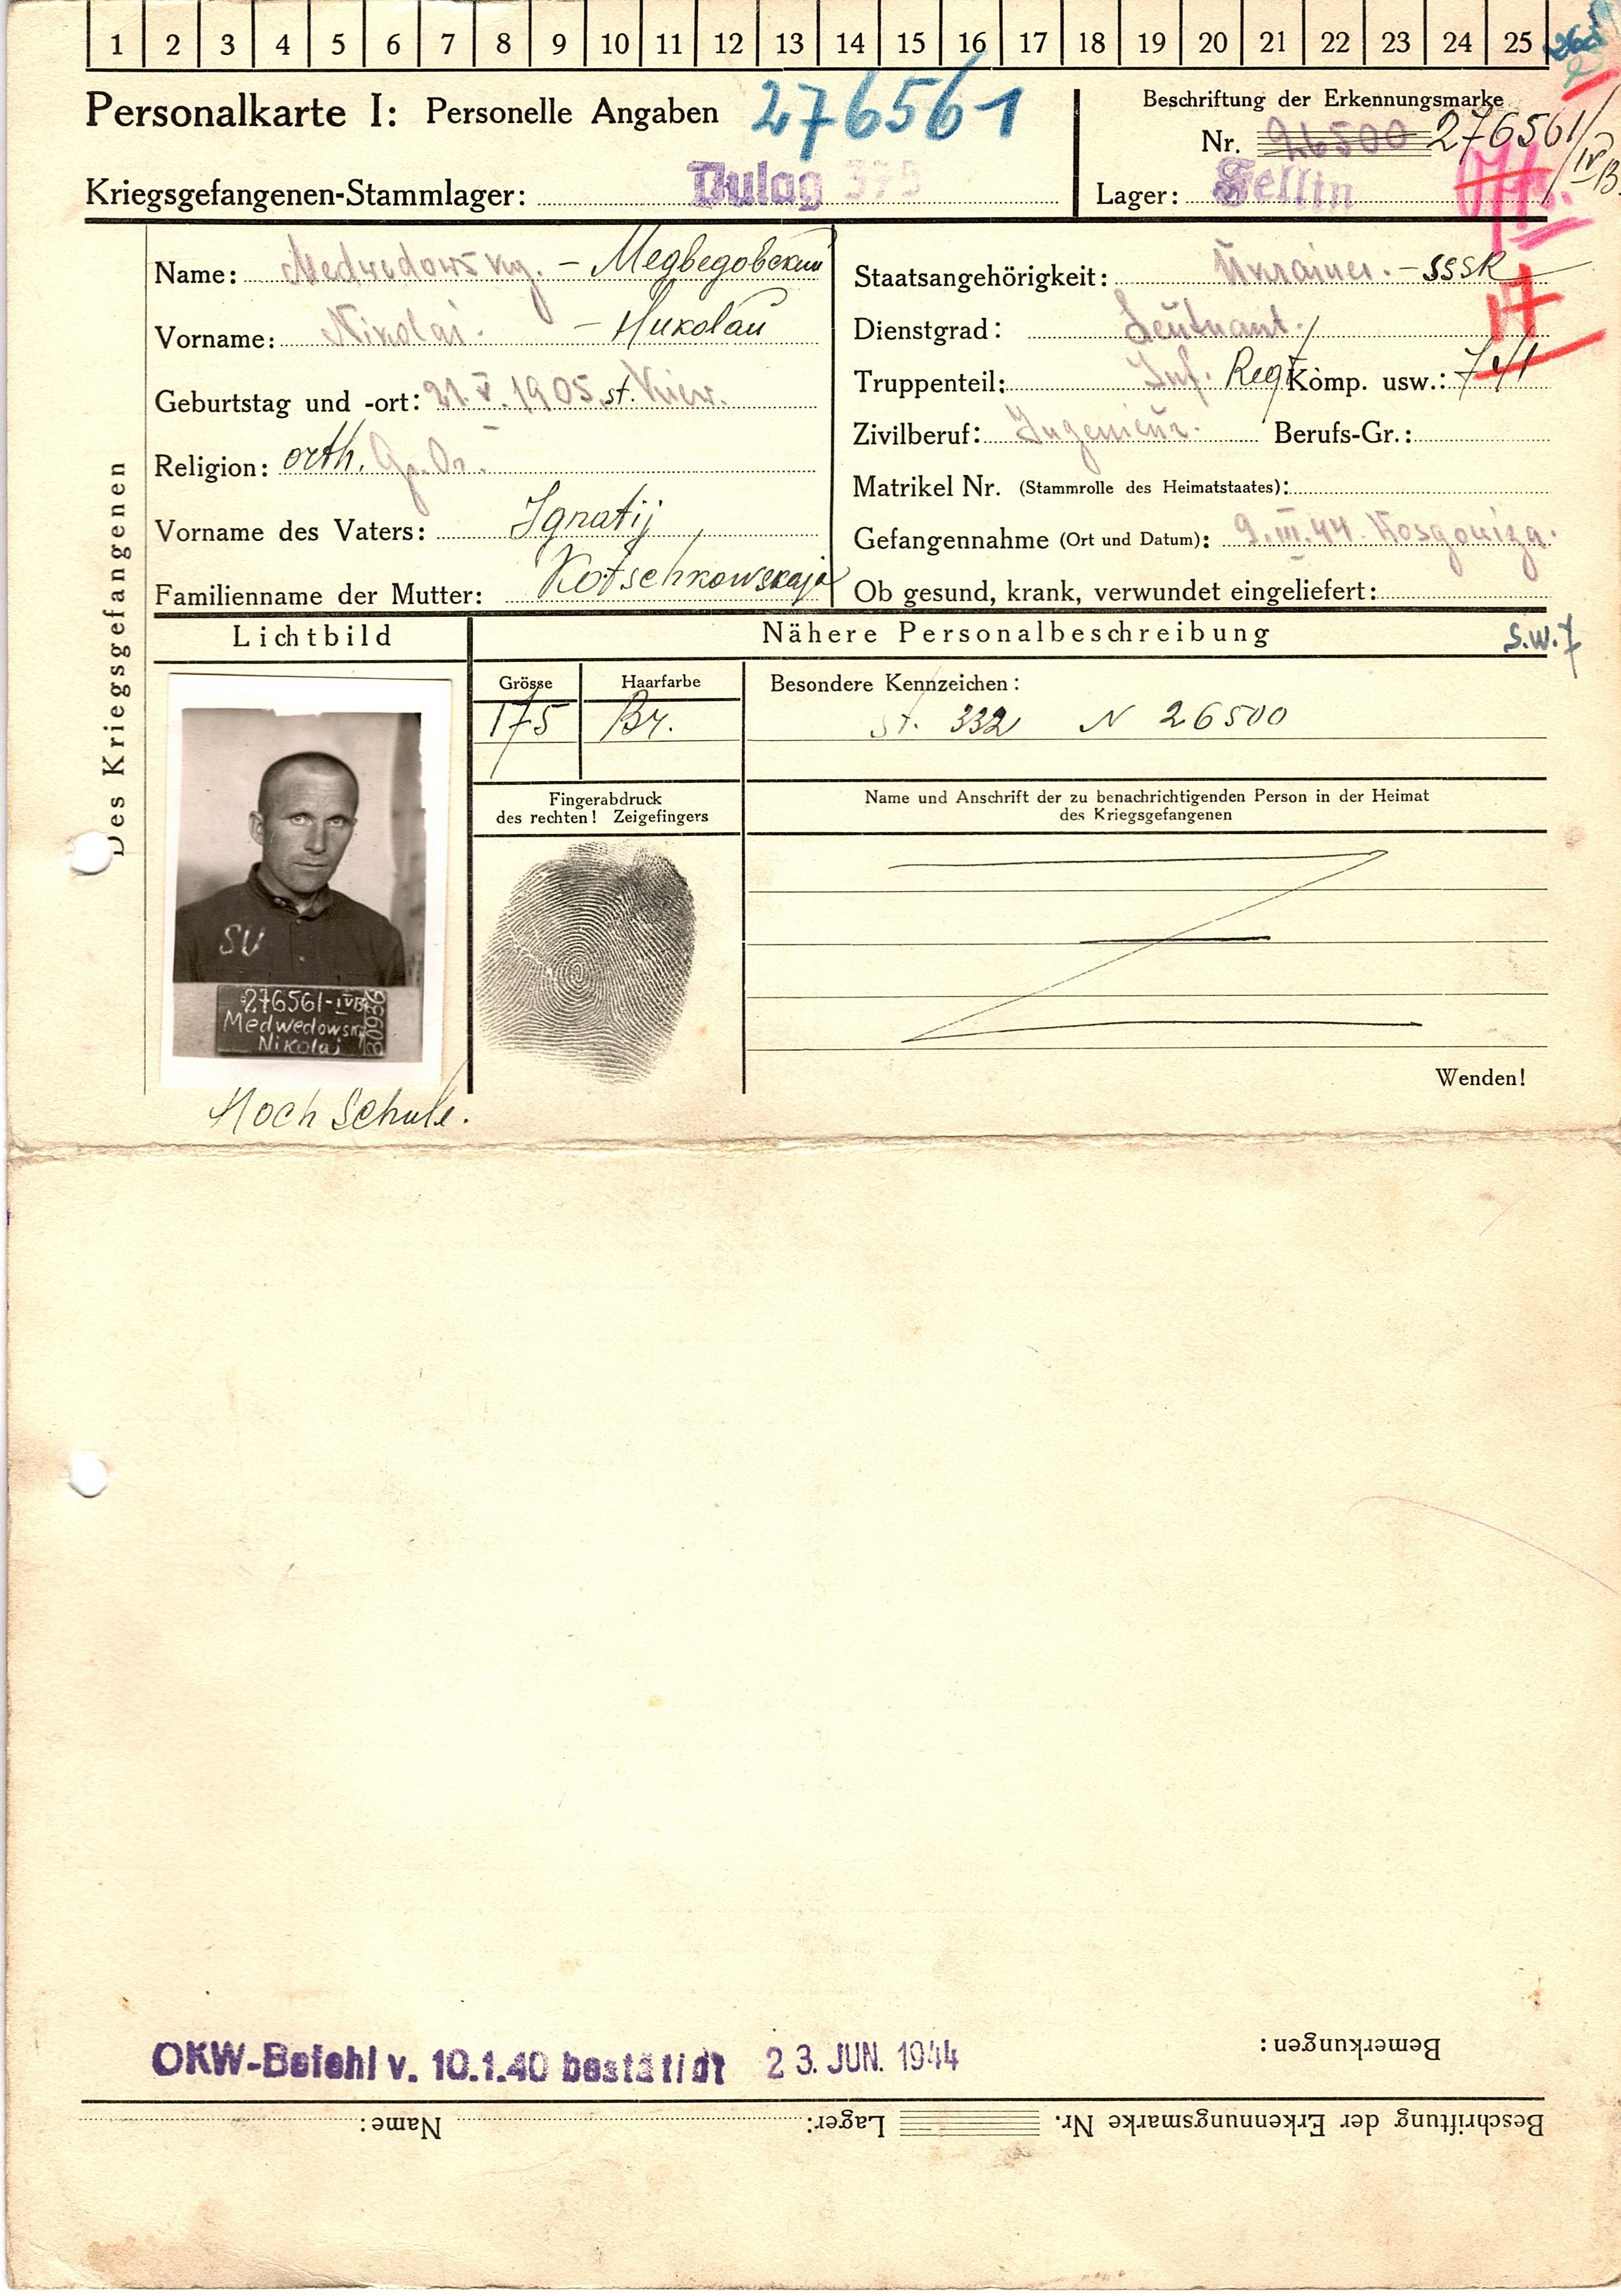 1 2 3 4 5 6 7 8 9 10 11 12 13 14 15 16 17 18 19 20 21 22 23 24 25
Personalkarte I: Personelle Angaben 276561
Beschriftung der Erkennungsmarke
Nr. 26500 276561/IVB
Kriegsgefangenen-Stammlager: Dulag 375
Lager: Fellin
Des Kriegsgefangenen
Name: Medwedowsky. – Медведовский
Vorname: Nikolai. – Николай
Geburtstag und -ort: 21.V.1905. st. Kiew.
Religion: orth. Gr. Or.
Vorname des Vaters: Ignatij
Familienname der Mutter: Kotschkowskaja
Staatsangehörigkeit: Ukrainer. – SSSR
Dienstgrad: Leutnant.
Truppenteil: Inf. Reg Komp. usw.:
Zivilberuf: Ingenieur. Berufs-Gr.:
Matrikel Nr. (Stammrolle des Heimatstaates):
Gefangennahme (Ort und Datum): 9.III.44.
Ob gesund, krank, verwundet eingeliefert:
Lichtbild
Nähere Personalbeschreibung
S.W.7
Grösse
175
Haarfarbe
Br.
Besondere Kennzeichen:
St. 332 N 26500
Fingerabdruck
des rechten! Zeigefingers
Name und Anschrift der zu benachrichtigenden Person in der Heimat
des Kriegsgefangenen
SU
276561-IVB
Medwedowski
Nikolai
Wenden!
Hoch Schule.
OKW-Befehl v. 10.1.40 bestätigt 23. JUN. 1944
Bemerkungen:
Beschriftung der Erkennungsmarke Nr. Lager: Name: